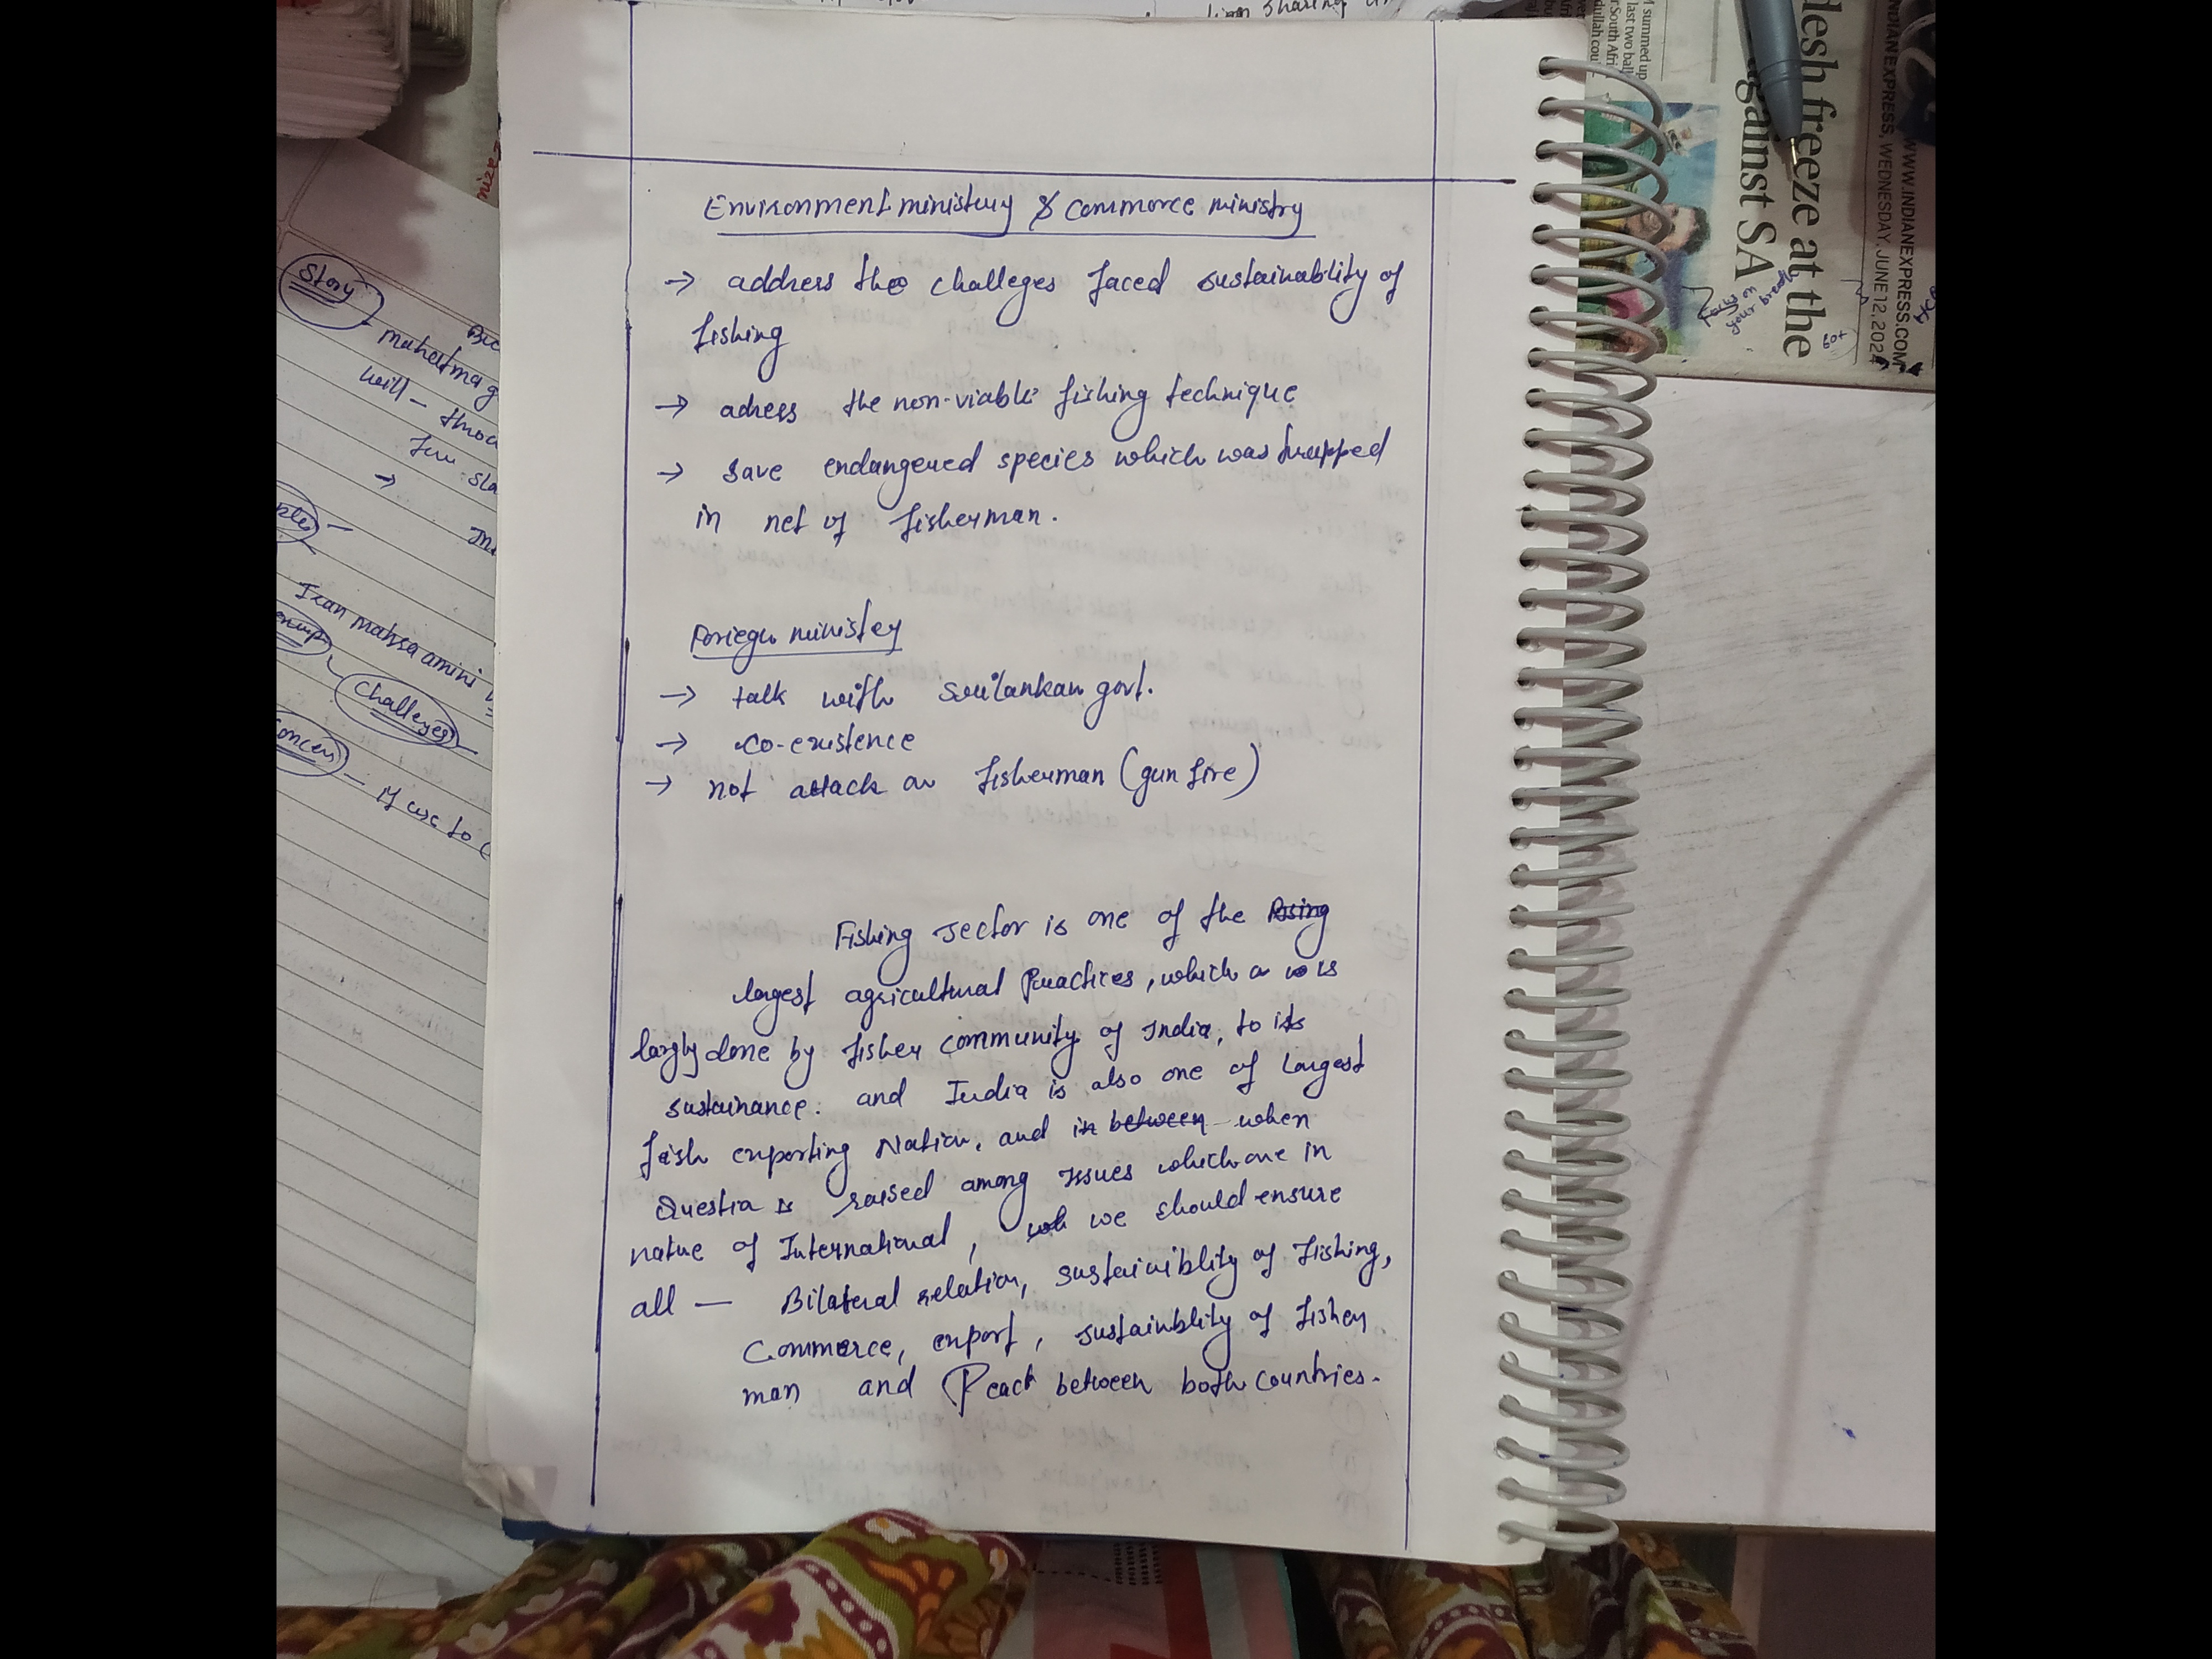 Environment ministury & commerce ministry
→ address the challeges faced sustainablity of
fishing
→ adress the non-viable fishing technique
→ save endangered species which was trapped
in net of fisherman.
Foriegn ministey
→ talk with Srilankan govt.
→ co-existence
→ not attack on fisherman (gun fire)
Fishing sector is one of the Rising
largest agricultural Practices, which is
largly done by fisher community of India, to its
sustainance. and India is also one of Largest
fish exporting Nation, and in between when
Question is raised among issues which are in
natue of International, we should ensure
all — Bilateral relation, sustainiblity of fishing,
Commerce, export, sustainblity of fisher
man and Peace between both countries.
Story
mahatma g
will - throu
→
Iran mahsa amini
Challeges
oncern
- if use to
lion sharing
desh freeze at the
against SA
WWW.INDIANEXPRESS.COM
INDIAN EXPRESS, WEDNESDAY, JUNE 12, 2024
summed up
last two ball
South Afri
dullah coul
focus on
your breath